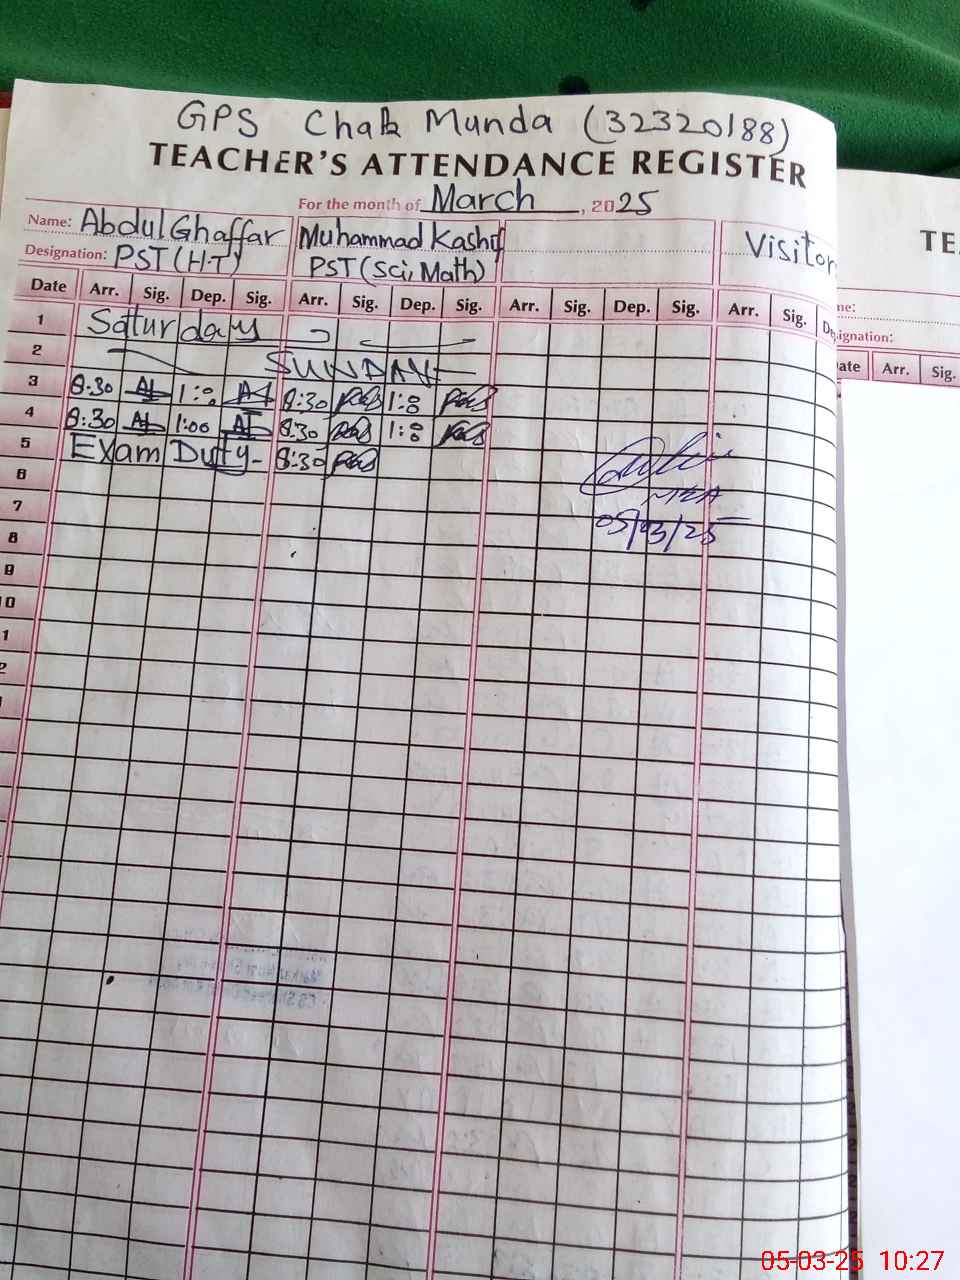 GPS Chak Munda (32320188)
TEACHER'S ATTENDANCE REGISTER
For the month of March, 2025
Name: Abdul Ghaffar Muhammad Kashif Visitor
Designation: PST (H.T) PST (Sci, Math)
Date Arr. Sig. Dep. Sig. Arr. Sig. Dep. Sig. Arr. Sig. Dep. Sig. Arr. Sig.
1 Saturday
2 SUNDAY
3 8:30 1:00 8:30 1:00
4 8:30 1:00 8:30 1:00
5 Exam Duty 8:30
6
7
8
9
05/03/25
TE
me:
signation:
ate Arr. Sig.
05-03-25 10:27